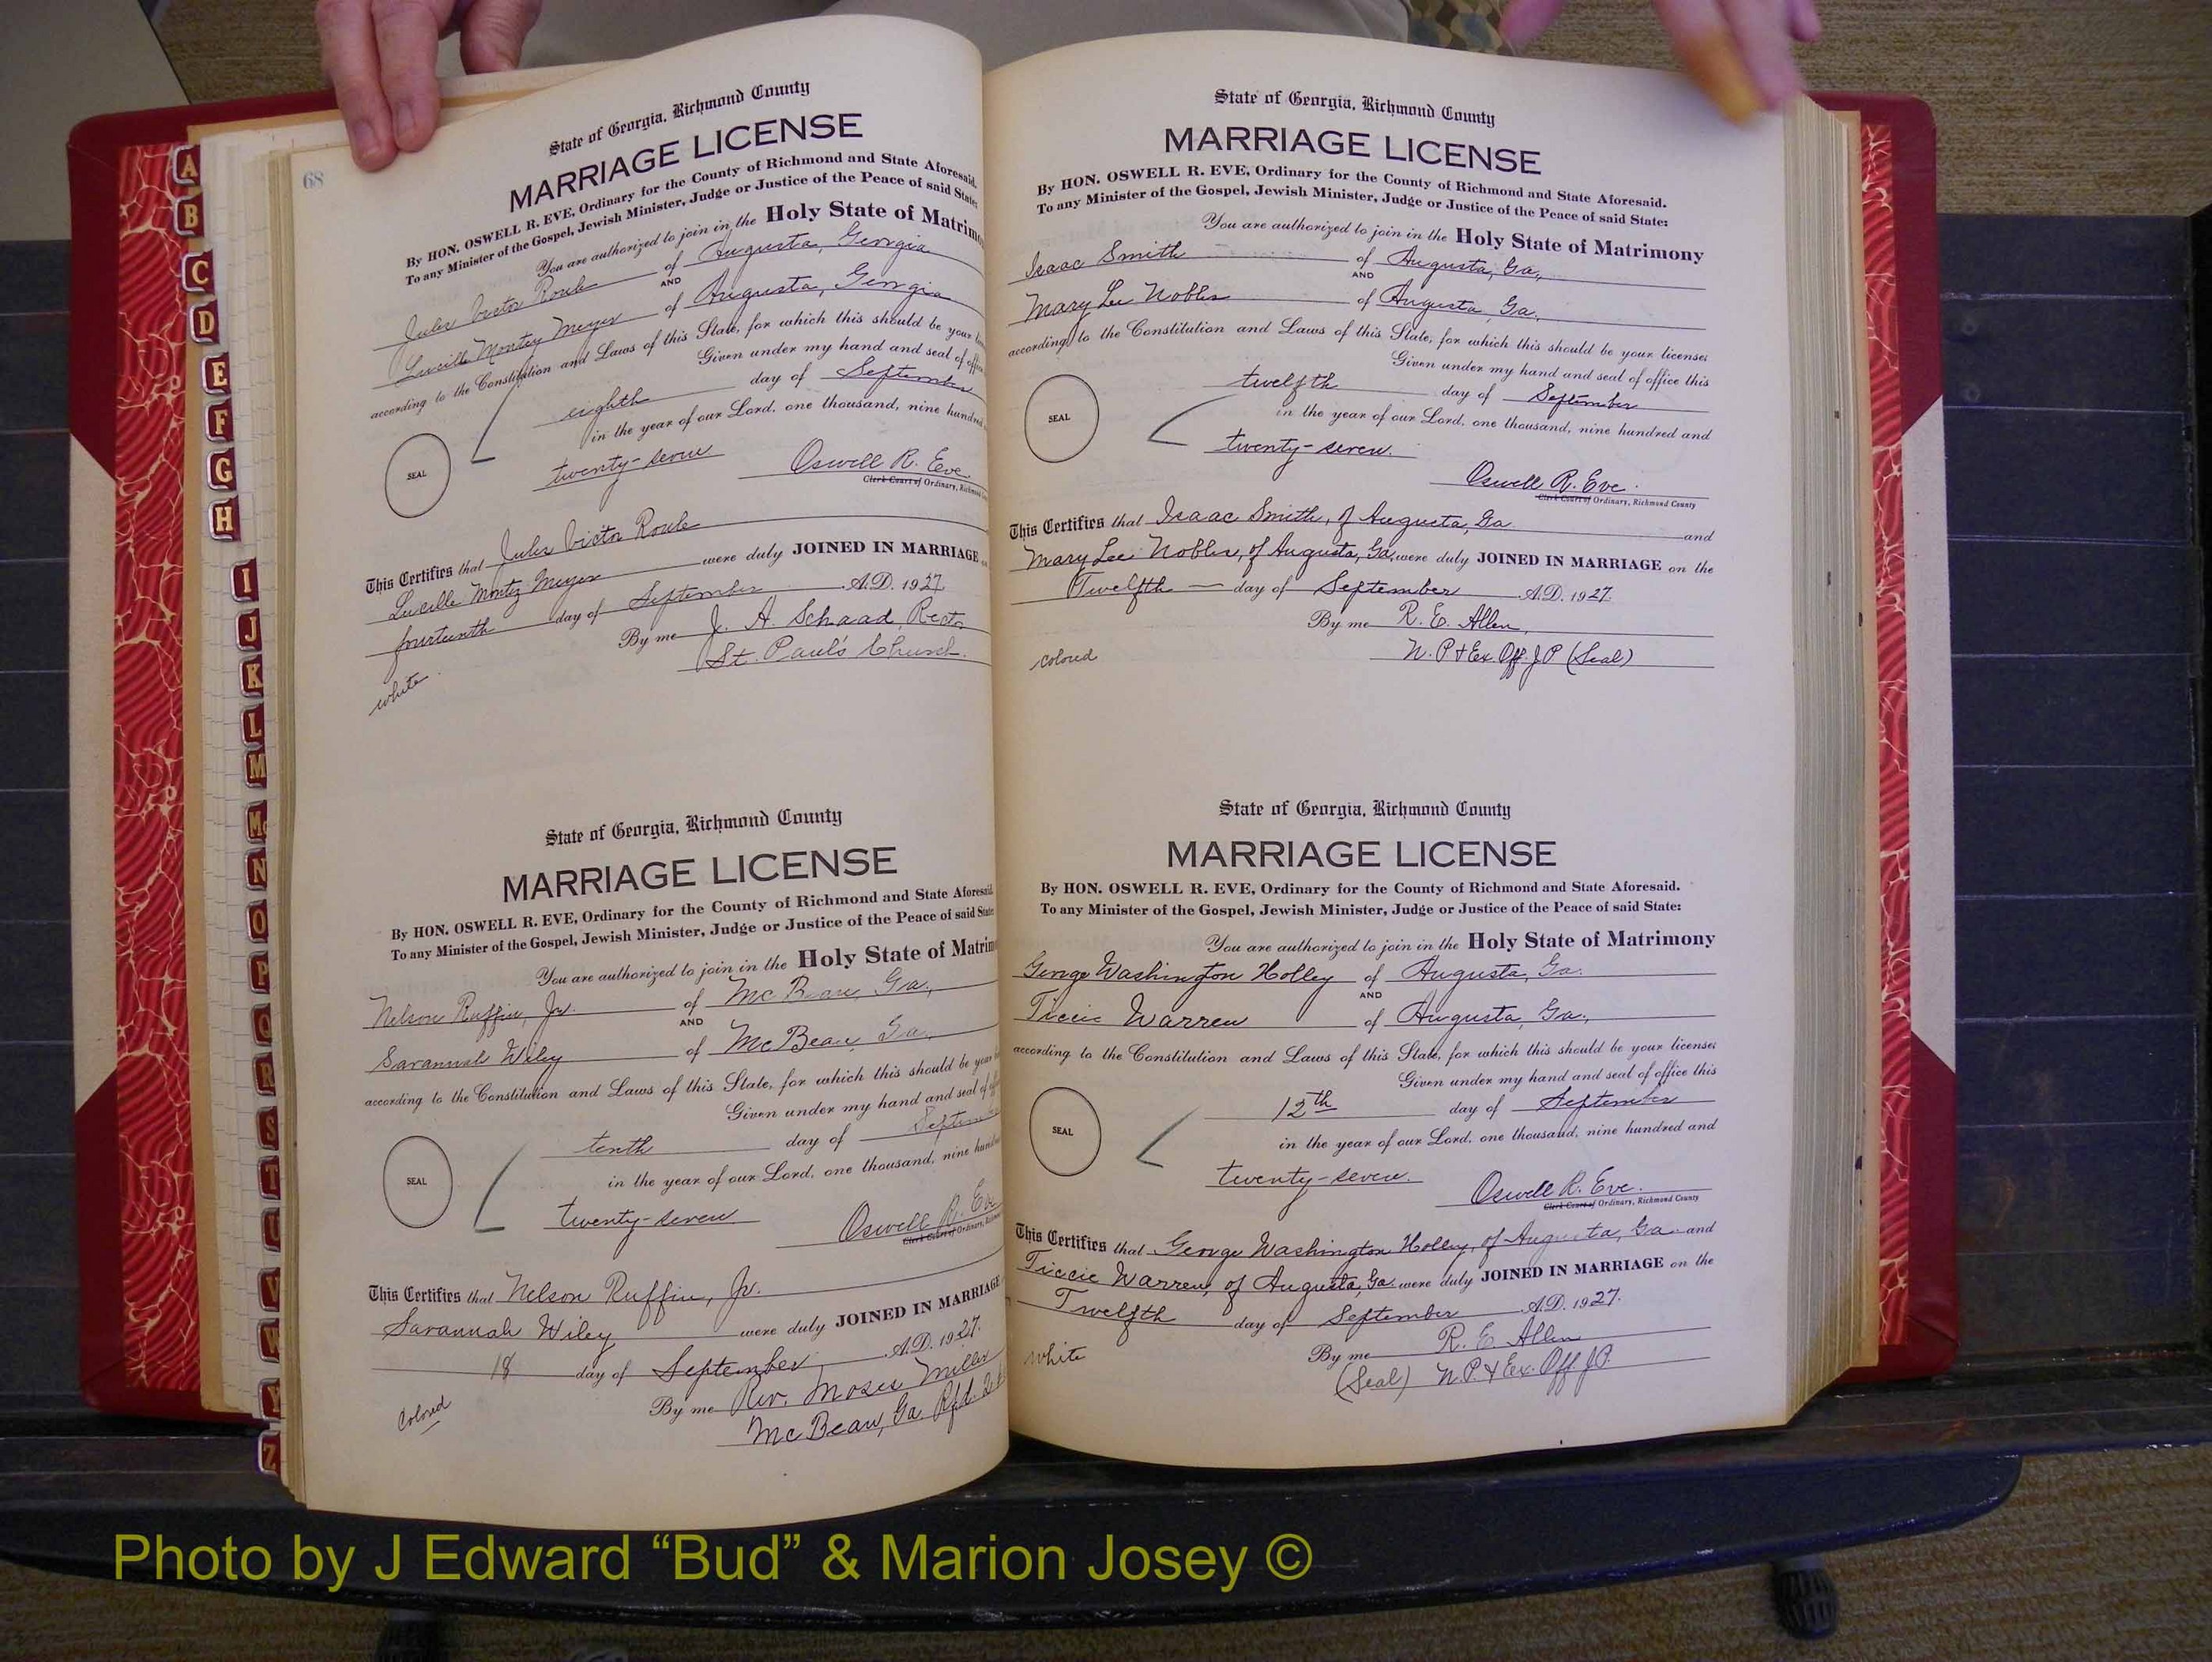 68
State of Georgia, Richmond County
MARRIAGE LICENSE
By HON. OSWELL R. EVE, Ordinary for the County of Richmond and State Aforesaid.
To any Minister of the Gospel, Jewish Minister, Judge or Justice of the Peace of said State:
You are authorized to join in the Holy State of Matrimo
Jules Victor Roule of Augusta, Georgia
AND
Lucille Montez Meyer of Augusta, Georgia
according to the Constitution and Laws of this State, for which this should be your
Given under my hand and seal of offi
eighth day of September
in the year of our Lord, one thousand, nine hundred
SEAL
twenty-seven
Oswell R. Eve
Clerk Court of Ordinary, Richmond
This Certifies that Jules Victor Roule
Lucille Montez Meyer were duly JOINED IN MARRIAGE
fourteenth day of September A.D. 1927
By me J. A. Schaad, Recto
St. Paul's Church.
white
State of Georgia, Richmond County
MARRIAGE LICENSE
By HON. OSWELL R. EVE, Ordinary for the County of Richmond and State Aforesaid.
To any Minister of the Gospel, Jewish Minister, Judge or Justice of the Peace of said State
You are authorized to join in the Holy State of Matrim
Nelson Ruffin, Jr. of McBean, Ga.,
AND
Savannah Wiley of McBean, Ga.,
according to the Constitution and Laws of this State, for which this should be your
Given under my hand and seal of
tenth day of Septem
in the year of our Lord, one thousand, nine hund
SEAL
twenty-seven
Oswell R. Eve
Clerk Court of Ordinary, Richm
This Certifies that Nelson Ruffin, Jr.
Savannah Wiley were duly JOINED IN MARRIAGE
18 day of September A.D. 1927.
By me Rev. Moses Miller
McBean, Ga. Rfd.
Colored
State of Georgia, Richmond County
MARRIAGE LICENSE
By HON. OSWELL R. EVE, Ordinary for the County of Richmond and State Aforesaid.
To any Minister of the Gospel, Jewish Minister, Judge or Justice of the Peace of said State:
You are authorized to join in the Holy State of Matrimony
Isaac Smith of Augusta, Ga.,
AND
Mary Lee Nobles of Augusta, Ga.
according to the Constitution and Laws of this State, for which this should be your license:
Given under my hand and seal of office this
twelfth day of September
in the year of our Lord, one thousand, nine hundred and
SEAL
twenty-seven.
Oswell R. Eve.
Clerk Court of Ordinary, Richmond County
This Certifies that Isaac Smith, of Augusta, Ga. and
Mary Lee Nobles, of Augusta, Ga. were duly JOINED IN MARRIAGE on the
Twelfth day of September A.D. 1927.
By me R. E. Allen,
N. P & Ex. Off. J P (Seal)
Colored
State of Georgia, Richmond County
MARRIAGE LICENSE
By HON. OSWELL R. EVE, Ordinary for the County of Richmond and State Aforesaid.
To any Minister of the Gospel, Jewish Minister, Judge or Justice of the Peace of said State:
You are authorized to join in the Holy State of Matrimony
George Washington Holley of Augusta, Ga.
AND
Ticcie Warren of Augusta, Ga.,
according to the Constitution and Laws of this State, for which this should be your license:
Given under my hand and seal of office this
12th day of September
in the year of our Lord, one thousand, nine hundred and
SEAL
twenty-seven.
Oswell R. Eve.
Clerk Court of Ordinary, Richmond County
This Certifies that George Washington Holley, of Augusta, Ga. and
Ticcie Warren, of Augusta, Ga. were duly JOINED IN MARRIAGE on the
Twelfth day of September A.D. 1927.
By me R. E. Allen
(Seal) N. P. & Ex. Off. J.P.
white
A
B
C
D
E
F
G
H
I
J
K
L
M
Mc
N
O
P
Q
R
S
T
U
V
W
Y
Z
Photo by J Edward “Bud” & Marion Josey ©